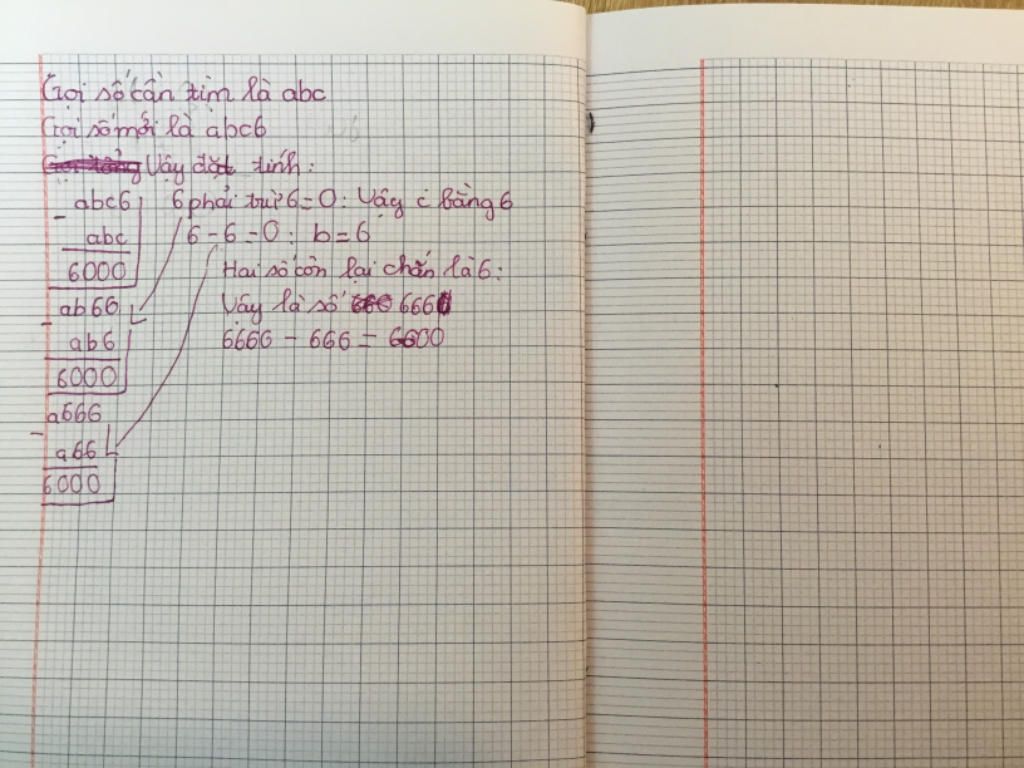 Gọi số cần tìm là abc
Gọi số mới là abc6
Vậy đặt tính:
abc6 6 phải trừ 6 = 0: Vậy c bằng 6
- abc 6 - 6 = 0: b = 6
6000 Hai số còn lại chắn là 6:
ab66 Vây là số 666
- ab6 6666 - 666 = 6600
6000
a666
- a66
6000